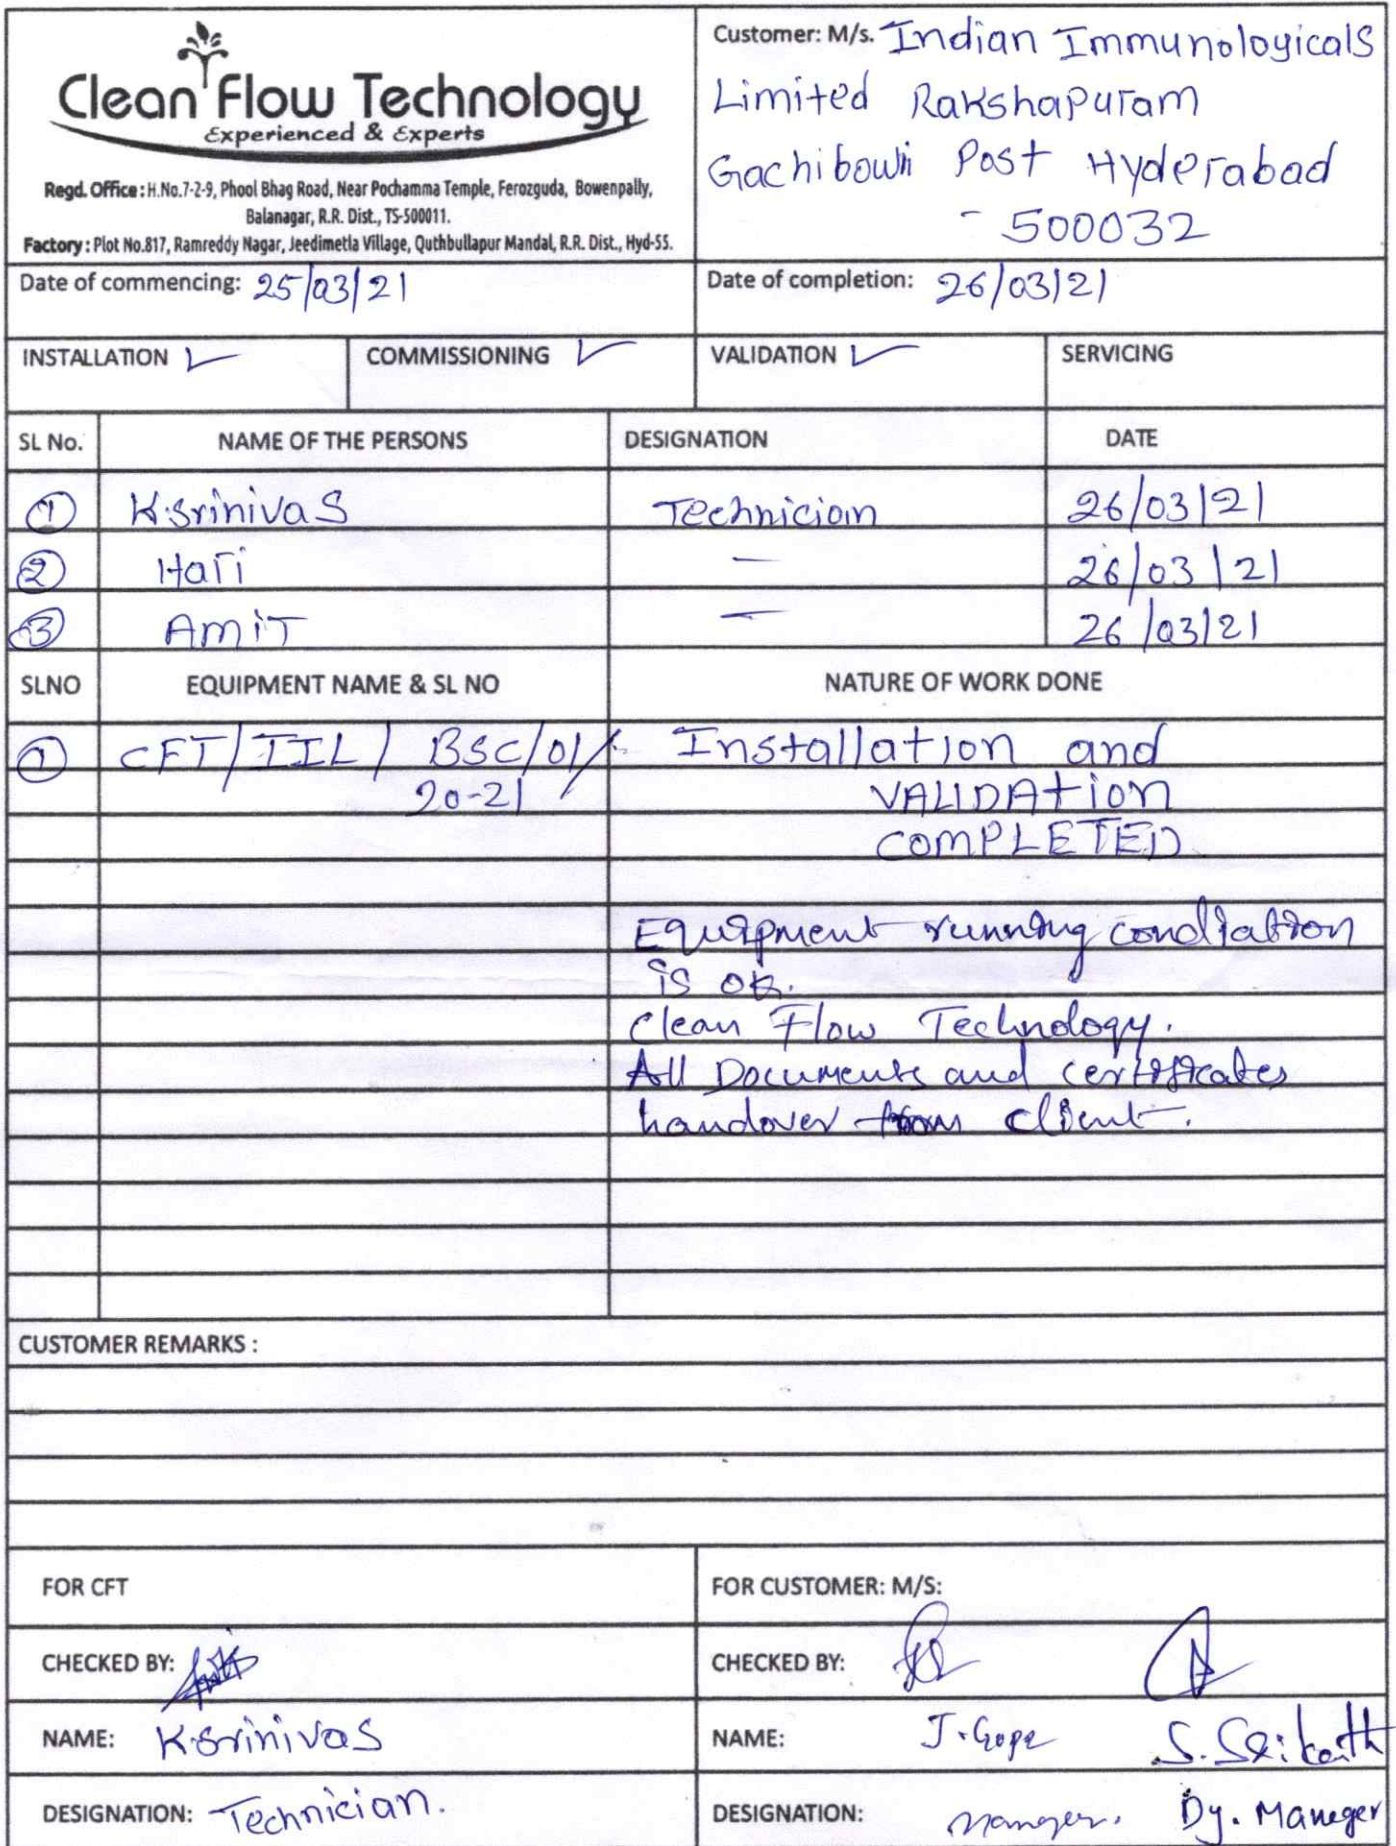 Clean Flow Technology
Experienced & Experts
Regd. Office : H.No.7-2-9, Phool Bhag Road, Near Pochamma Temple, Ferozguda, Bowenpally,
Balanagar, R.R. Dist., TS-500011.
Factory : Plot No.817, Ramreddy Nagar, Jeedimetla Village, Quthbullapur Mandal, R.R. Dist., Hyd-55.
Customer: M/s. Indian Immunologicals
Limited Rakshapuram
Gachibowli Post Hyderabad
- 500032
Date of commencing: 25/03/21
Date of completion: 26/03/21
INSTALLATION ✓ COMMISSIONING ✓ VALIDATION ✓ SERVICING
SL No. NAME OF THE PERSONS DESIGNATION DATE
1 K.Srinivas Technician 26/03/21
2 Hari — 26/03/21
3 AmiT — 26/03/21
SLNO EQUIPMENT NAME & SL NO NATURE OF WORK DONE
1 CFT/IIL/BSC/01/ Installation and
20-21 VALIDATion
COMPLETED
Equipment running condiation
is ok.
Clean Flow Technology.
All Documents and certificates
handover from client.
CUSTOMER REMARKS :
FOR CFT FOR CUSTOMER: M/S:
CHECKED BY: CHECKED BY:
NAME: K.Srinivas NAME: J. S. Srikanth
DESIGNATION: Technician. DESIGNATION: Manager. Dy. Maneger